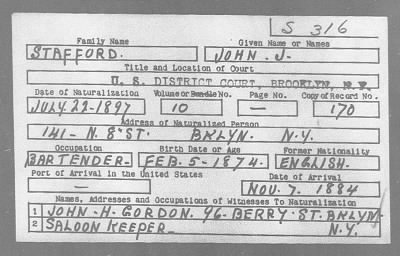 S 316
Family Name Given Name or Names
STAFFORD. JOHN. J.
Title and Location of Court
U. S. DISTRICT COURT, BROOKLYN, N.Y.
Date of Naturalization Volume or Bundle No. Page No. Copy of Record No.
JULY. 22-1897 10 — 170
Address of Naturalized Person
141- N. 8th ST. BKLYN. N.Y.
Occupation Birth Date or Age Former Nationality
BARTENDER- FEB. 5-1874. ENGLISH.
Port of Arrival in the United States Date of Arrival
— NOV. 7. 1884
Names, Addresses and Occupations of Witnesses To Naturalization
1 JOHN-H. GORDON. 96-BERRY-ST. BKLYN-
2 SALOON KEEPER_ N.Y.